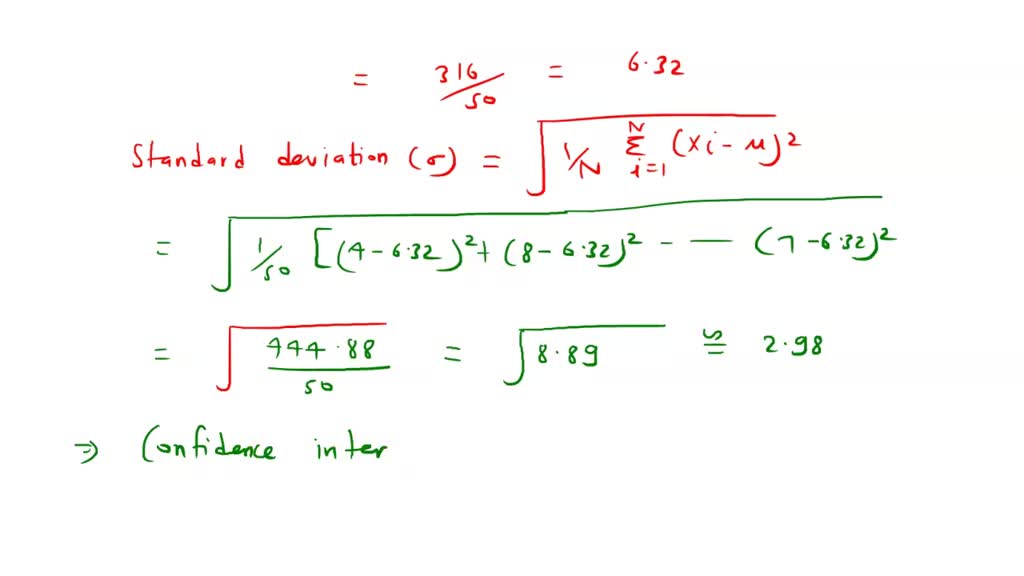 = 316/50 = 6.32
Standard deviation (σ) = √(1/N Σ_{i=1}^{N} (xi - μ)²)
= √(1/50 [(4 - 6.32)² + (8 - 6.32)² - — (7 - 6.32)²
= √(444.88/50) = √8.89 ≌ 2.98
⇒ Confidence inter